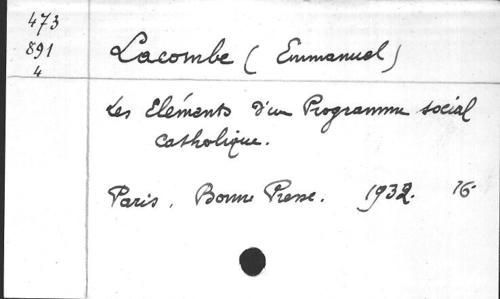 473
891
4
Lacombe (Emmanuel)
Les Eléments d'un Programme social
catholique.
Paris. Bonne Presse. 1932. 16-